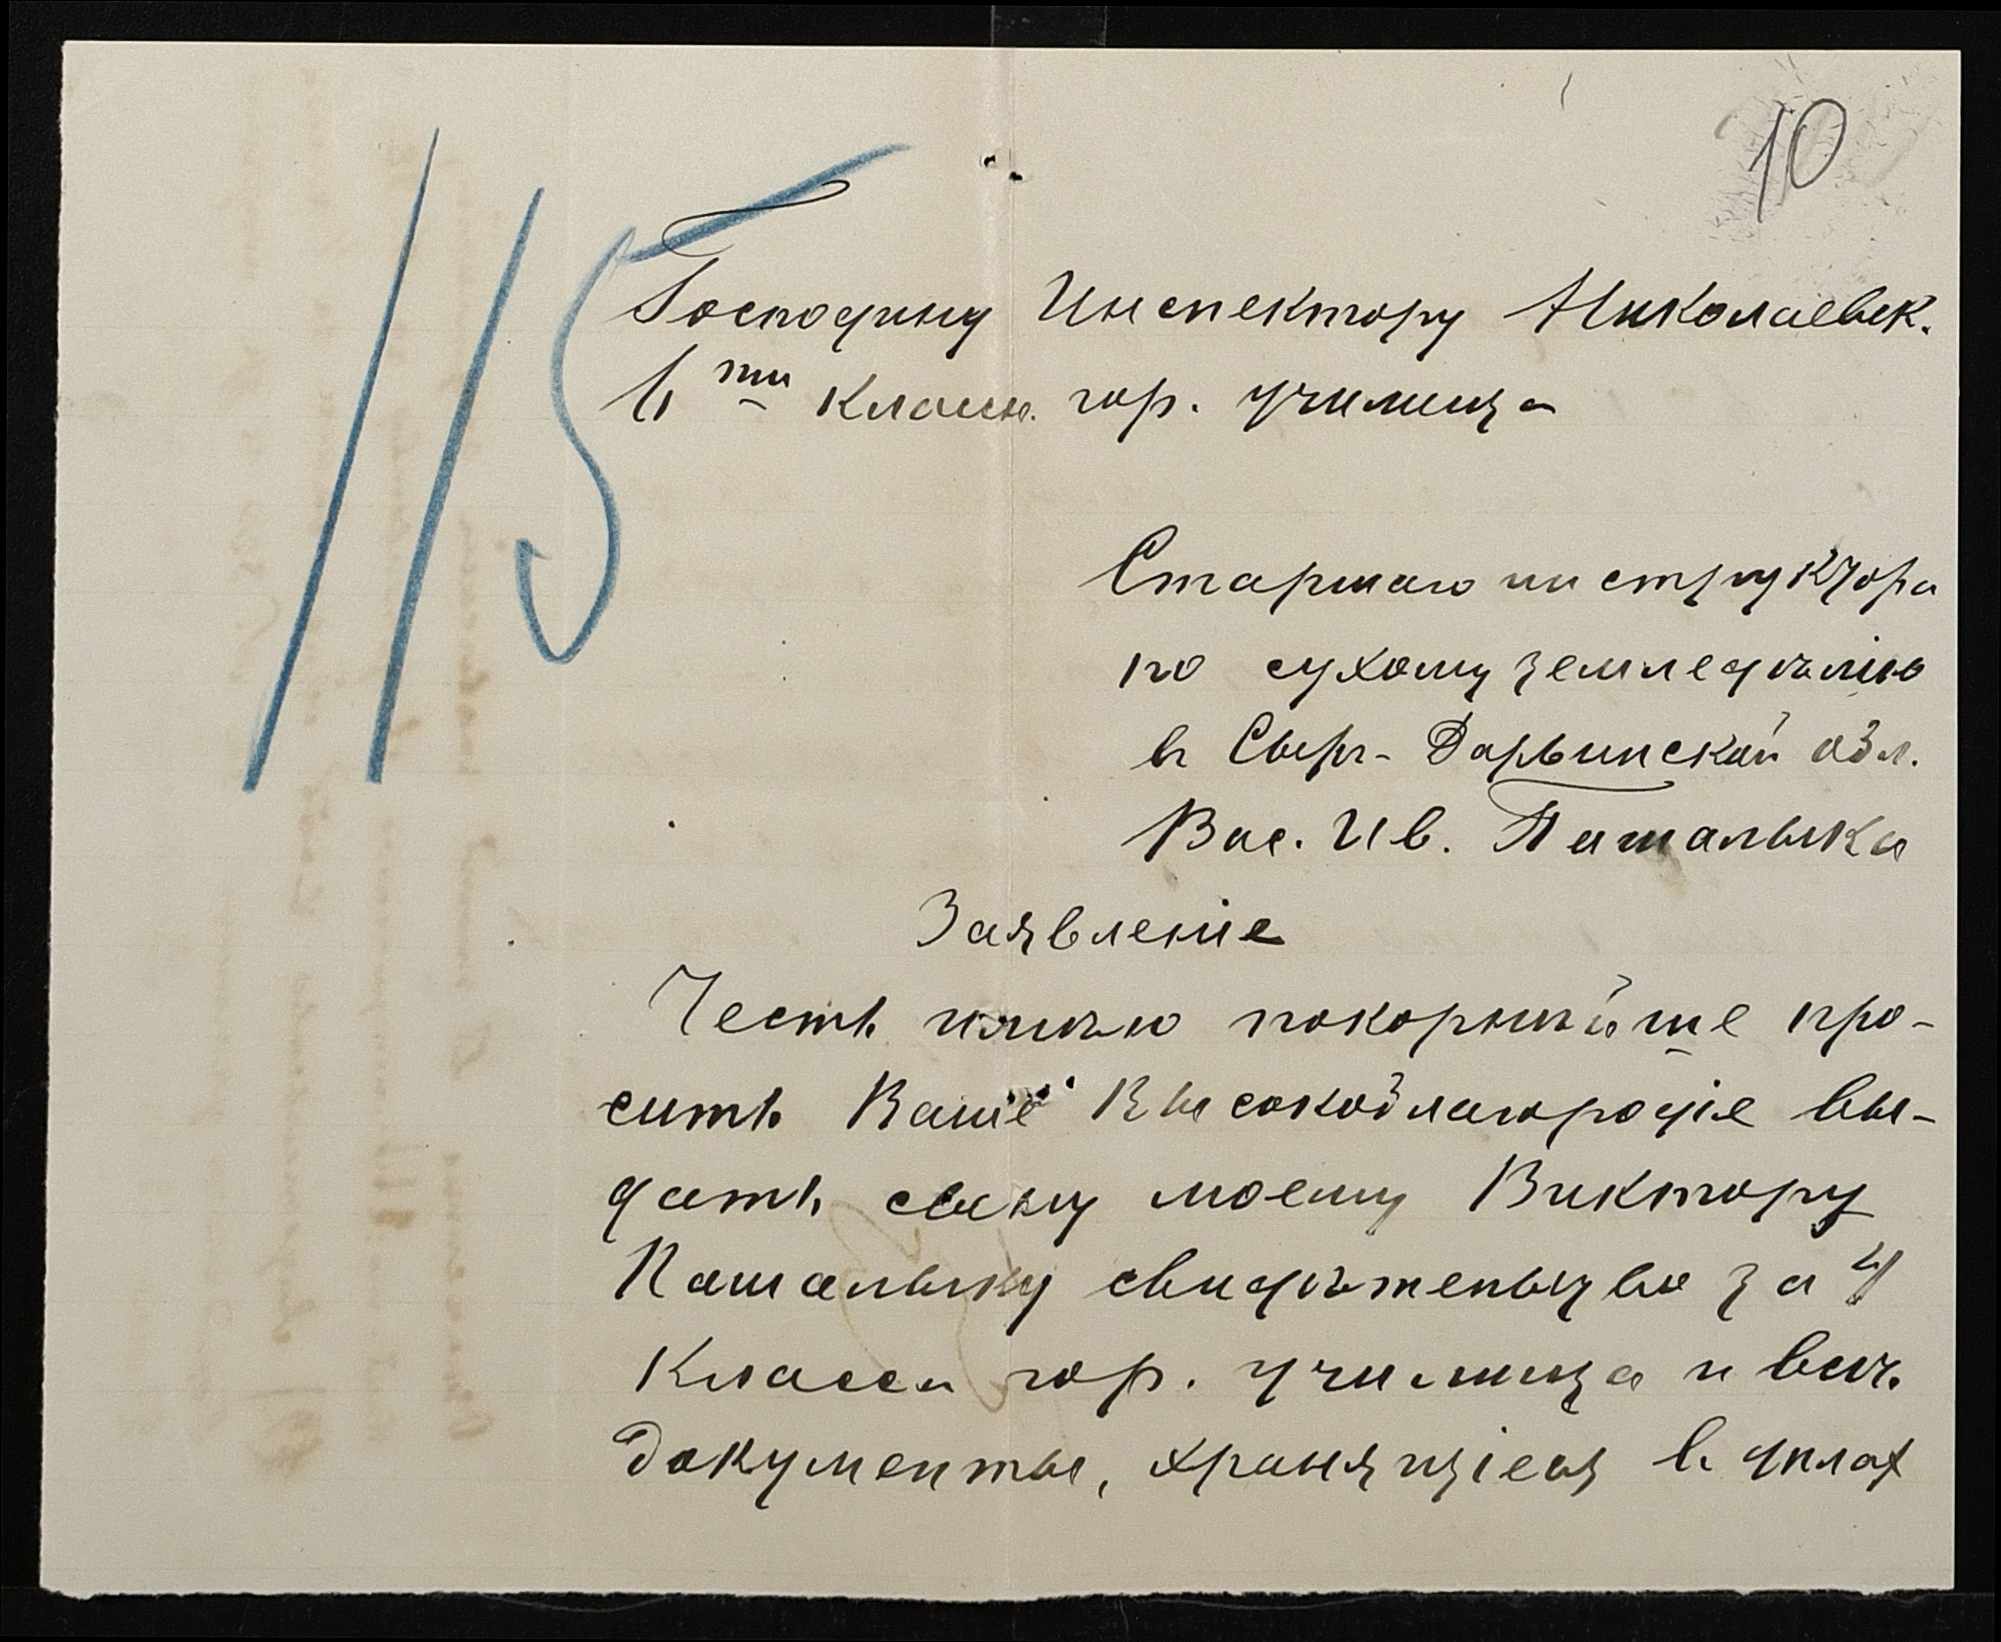 10
115
Господину Инспектору Николаевск.
6ти класн. гор. училища
Старшаго инструктора
по сухому земледѣлію
в Сыръ-Дарьинской обл.
Вас. Ив. Пашалыка
Заявленіе
Честь имѣю покорнѣйше про-
сить Ваше Высокоблагородіе вы-
дать сыну моему Виктору
Пашалыку свидѣтельство за 4
класса гор. училища и всѣ
документы, хранящіеся в дѣлах